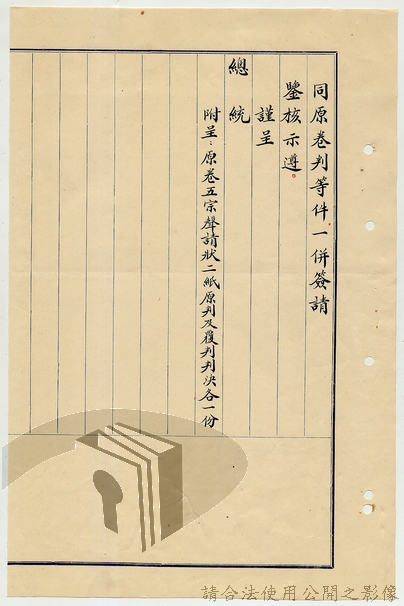 同原卷判等件一併簽請
鑒核示遵。
謹呈
總統
附呈：原卷五宗聲請狀二紙原判及覆判判決各一份
請合法使用公開之影像